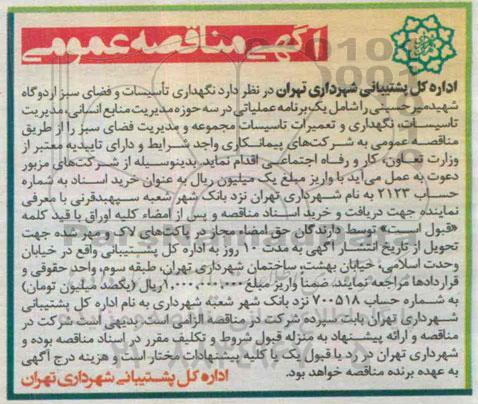 آگهی مناقصه عمومی
اداره کل پشتیبانی شهرداری تهران در نظر دارد نگهداری تأسیسات و فضای سبز اردوگاه
شهید میرحسینی را شامل یک برنامه عملیاتی در سه حوزه مدیریت منابع انسانی، مدیریت
تاسیسات، نگهداری و تعمیرات تاسیسات مجموعه و مدیریت فضای سبز را از طریق
مناقصه عمومی به شرکت‌های پیمانکاری واجد شرایط و دارای تاییدیه معتبر از
وزارت تعاون، کار و رفاه اجتماعی اقدام نماید. بدینوسیله از شرکت‌های مزبور
دعوت به عمل می‌آید با واریز مبلغ یک میلیون ریال به عنوان خرید اسناد به شماره
حساب ۲۱۲۳ به نام شهرداری تهران نزد بانک شهر شعبه سپهبدقرنی با معرفی
نماینده جهت دریافت و خرید اسناد مناقصه و پس از امضاء کلیه اوراق با قید کلمه
«قبول است» توسط دارندگان حق امضاء مجاز در پاکت‌های لاک و مهر شده جهت
تحویل از تاریخ انتشار آگهی به مدت ۱۰ روز به اداره کل پشتیبانی واقع در خیابان
وحدت اسلامی، خیابان بهشت، ساختمان شهرداری تهران، طبقه سوم، واحد حقوقی و
قراردادها مراجعه نمایند. ضمناً واریز مبلغ ۱,۰۰۰,۰۰۰,۰۰۰ ریال (یکصد میلیون تومان)
به شماره حساب ۷۰۰۵۱۸ نزد بانک شهر شعبه شهرداری به نام اداره کل پشتیبانی
شهرداری تهران بابت سپرده شرکت در مناقصه الزامی است. بدیهی است شرکت در
مناقصه و ارائه پیشنهاد به منزله قبول شروط و تکلیف مقرر در اسناد مناقصه بوده و
شهرداری تهران در رد یا قبول یک یا کلیه پیشنهادات مختار است و هزینه درج آگهی
به عهده برنده مناقصه خواهد بود.
اداره کل پشتیبانی شهرداری تهران